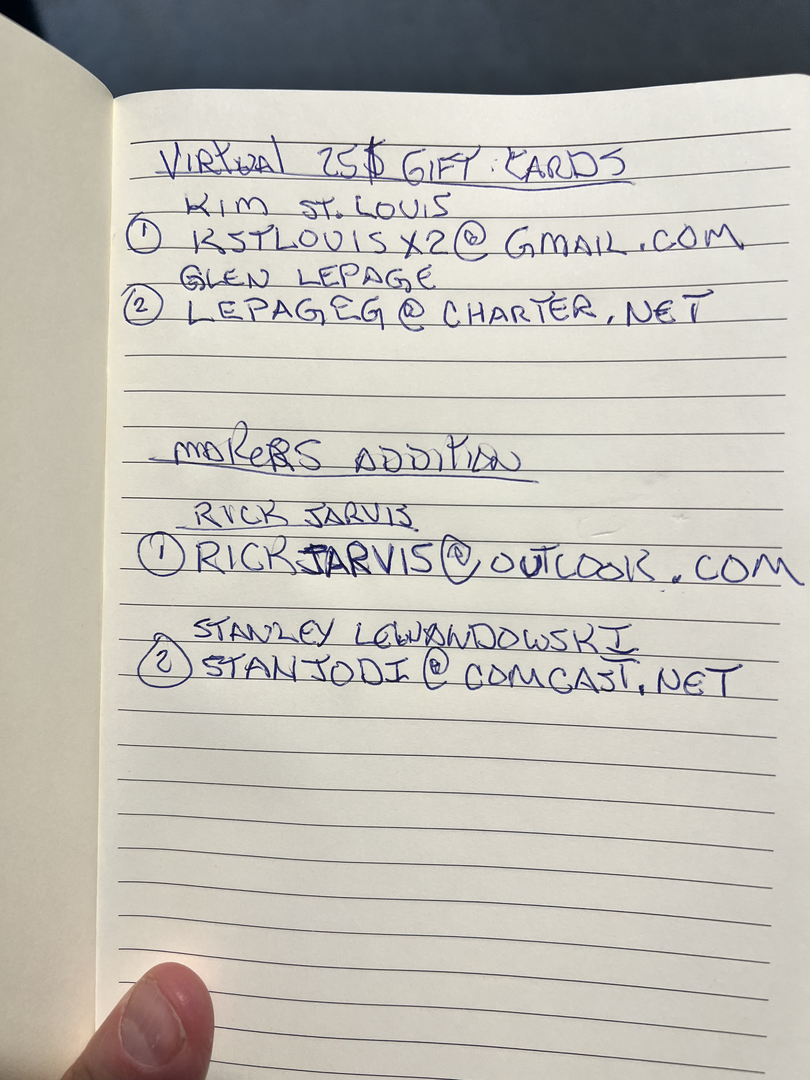 VIRTUAL 25$ GIFT CARDS
KIM ST. LOUIS
① KSTLOUISX2@GMAIL.COM
GLEN LEPAGE
② LEPAGEG@CHARTER.NET
MAKERS ADDITION
RICK JARVIS
① RICKJARVIS@OUTLOOK.COM
STANLEY LEWANDOWSKI
② STANJODI@COMCAST.NET